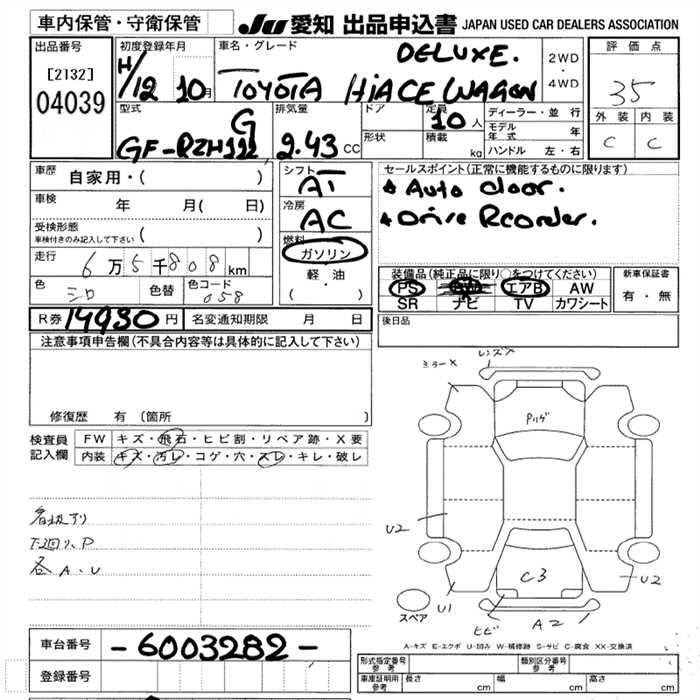 車内保管・守衛保管
JU 愛知 出品申込書 JAPAN USED CAR DEALERS ASSOCIATION
出品番号
[2132]
04039
初度登録年月
H/12 10月
車名・グレード
DELUXE.
TOYOTA HiACE WAGON
2WD
・
4WD
評価点
35
外装 内装
C C
型式
GF-RZH112G
排気量
2.43 CC
ドア
形状
定員
10人
積載
kg
ディーラー・並行
モデル年式 年
ハンドル 左・右
車歴
自家用・( )
車検
年 月( 日)
受検形態
車検付きのみ記入して下さい ( )
走行
6万5千808km
色
シロ
色替
色コード
058
シフト
AT
冷房
AC
燃料
ガソリン
軽・油
( ・ )
セールスポイント(正常に機能するものに限ります)
★Auto door.
★Drive Rcorder.
装備品(純正品に限り○をつけてください)
PS エアB AW
SR ナビ TV カワシート
新車保証書
有・無
R券 14930円 名変通知期限 月 日
後日品
注意事項申告欄(不具合内容等は具体的に記入して下さい)
修復歴 有(箇所
検査員
記入欄
FW キズ・飛石・ヒビ割・リペア跡・X要
内装 キズ・汚レ・コゲ・穴・スレ・キレ・破レ
看板アリ
下回り、P
各A、U
ミラーX
レンズX
U2
C3
U2
U1
ヒビ
A2
スペア
A-キズ E-エクボ U-凹み W-補修跡 S-サビ C-腐食 XX-交換済
車台番号
-6003282-
登録番号
形式指定番号
参考
類別区分番号
参考
車庫証明用
参考
長さ cm
幅 cm
高さ cm